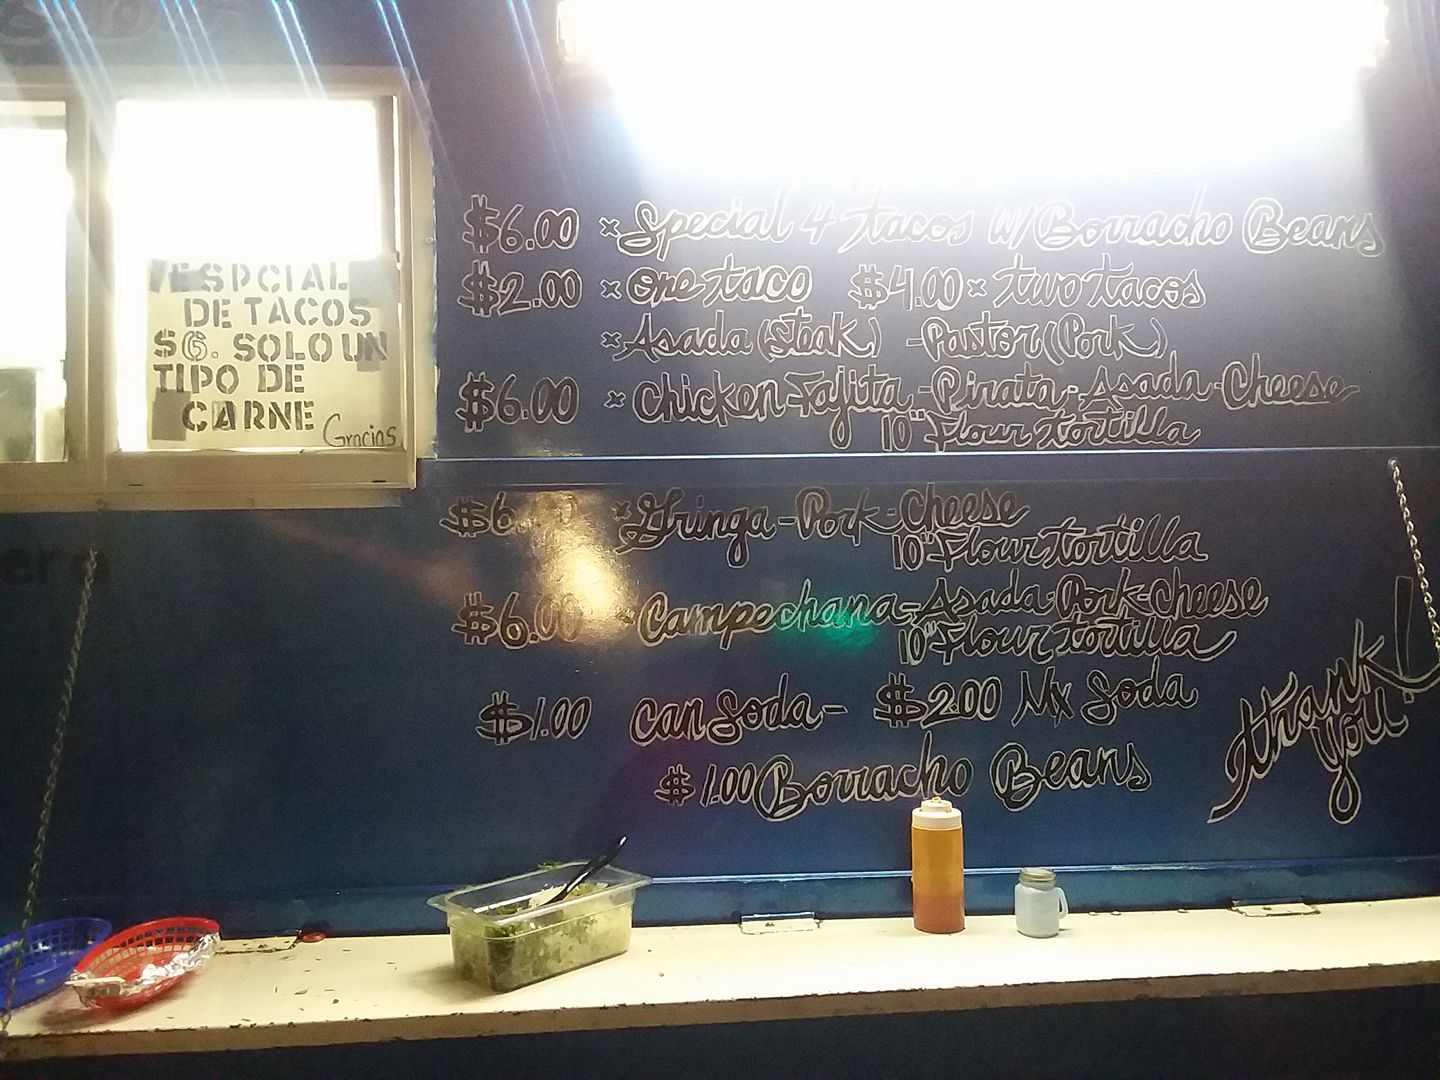 ESPCIAL
DE TACOS
$6. SOLO UN
TIPO DE
CARNE
Gracias
$6.00 × Special 4 tacos w/ Borracho Beans
$2.00 × One taco $4.00 × two tacos
× Asada (steak) - Pastor (Pork)
$6.00 × Chicken Fajita - Pirata - Asada - Cheese
10" Flour tortilla
$6. × Gringa - Pork - Cheese
10" Flour tortilla
$6.00 - Campechana - Asada - Pork - cheese
10" Flour tortilla
$1.00 can Soda - $2.00 Mx Soda
$1.00 Borracho Beans
thank
you!